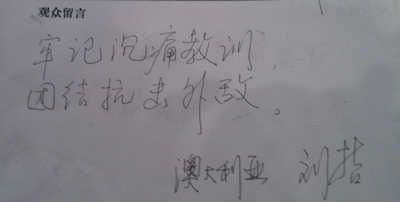 观众留言
牢记沉痛教训，
团结抗击外敌。
澳大利亚 刘喆